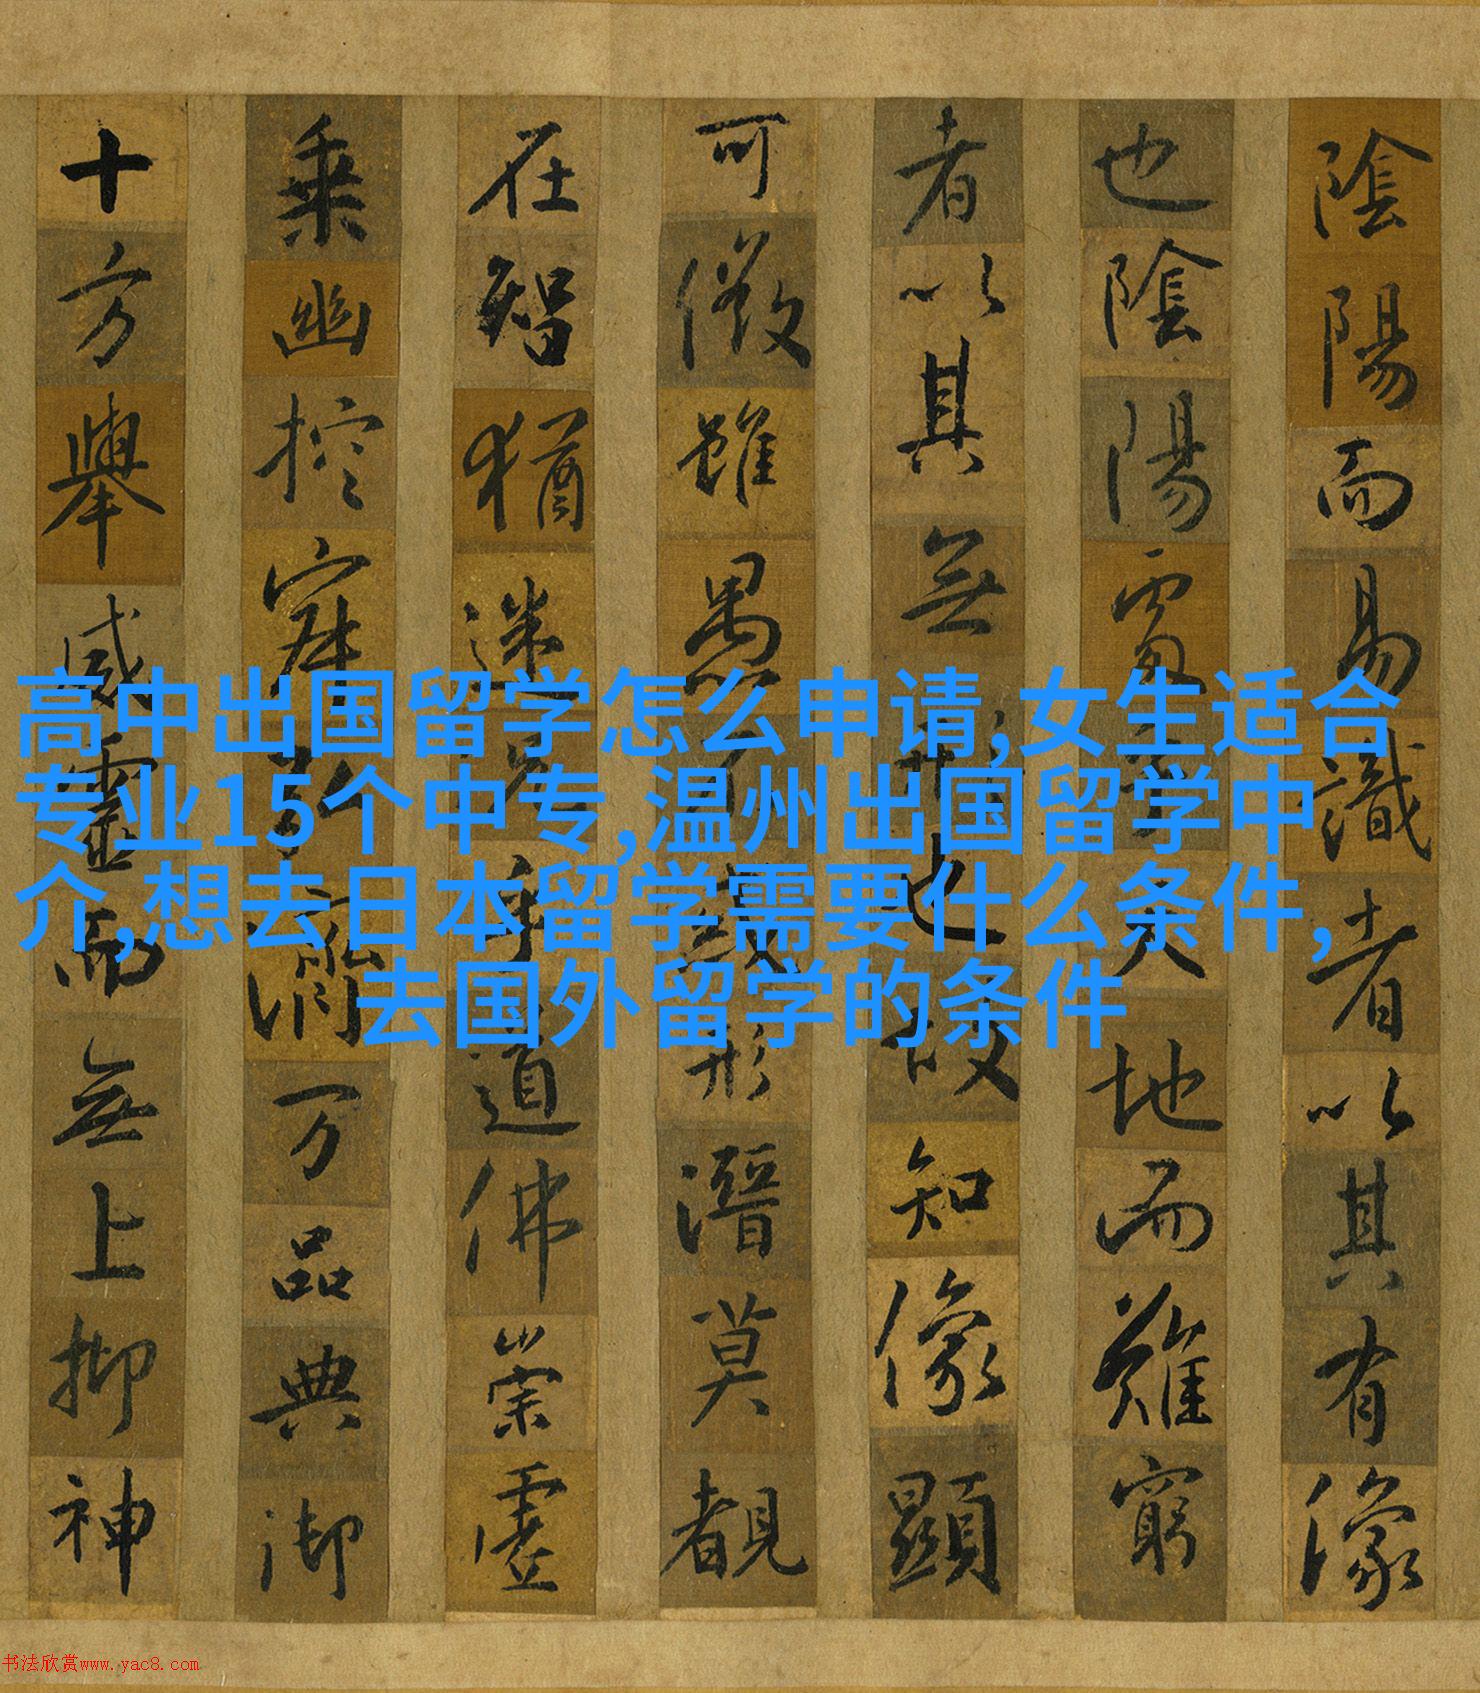 陰陽而易識者以其有像
也陰陽處乎天地而難窮
者以其無形也故知像顯
可徵雖愚不惑形潛莫覩
在智猶迷況乎佛道崇虛
乘幽控寂弘濟万品典御
十方舉威靈而無上抑神
高中出国留学怎么申请,女生适合
专业15个中专,温州出国留学中
介,想去日本留学需要什么条件,
去国外留学的条件
书法欣赏www.yac8.com